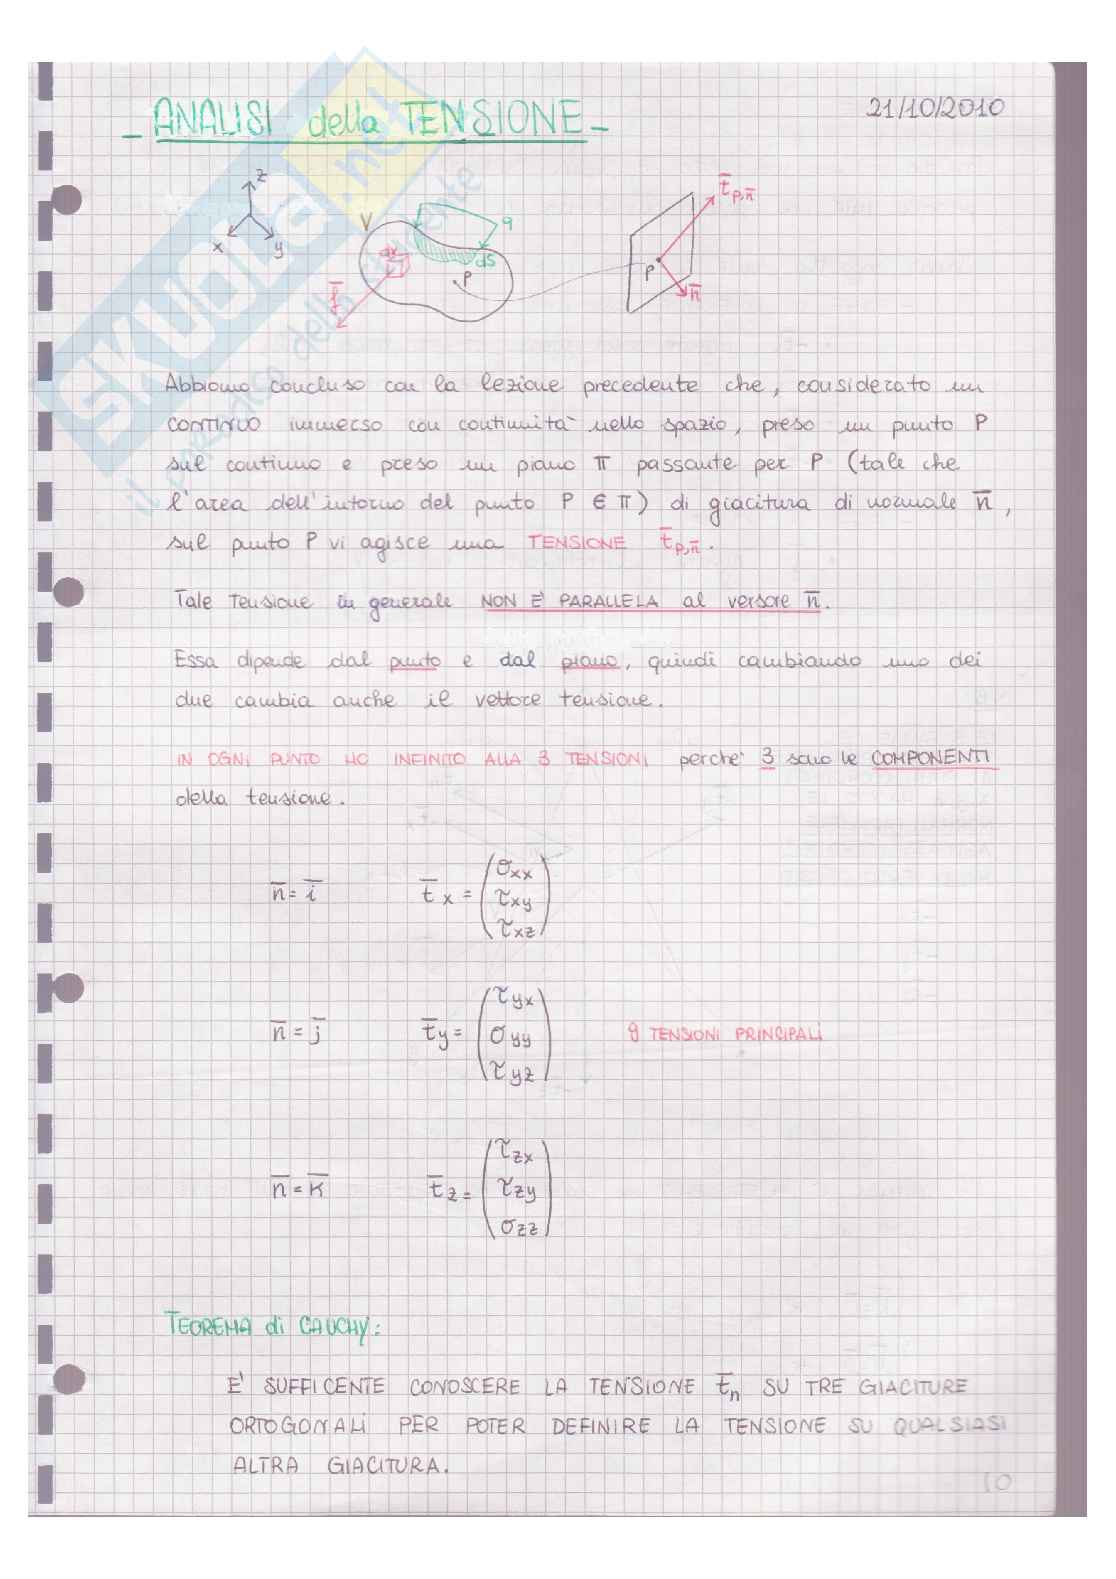 21/10/2010
- ANALISI della TENSIONE -
SKUOLA.net
il portale dello studente
z
x
y
V
dv
f̅
q
dS
P
t̅p,n̅
P
n̅
Abbiamo concluso con la lezione precedente che, considerato un
CONTINUO immerso con continuità nello spazio, preso un punto P
sul continuo e preso un piano π passante per P (tale che
l'area dell'intorno del punto P ∈ π) di giacitura di normale n̅,
sul punto P vi agisce una TENSIONE t̅p,n̅.
Tale Tensione in generale NON E' PARALLELA al versore n̅.
Essa dipende dal punto e dal piano, quindi cambiando uno dei
due cambia anche il vettore tensione.
IN OGNI PUNTO HO INFINITO ALLA 3 TENSIONI perche' 3 sono le COMPONENTI
della tensione.
n̅ = i̅ t̅x = (σxx
τxy
τxz)
n̅ = j̅ t̅y = (τyx
σyy
τyz)
9 TENSIONI PRINCIPALI
n̅ = k̅ t̅z = (τzx
τzy
σzz)
TEOREMA di CAUCHY:
E' SUFFICENTE CONOSCERE LA TENSIONE t̅n SU TRE GIACITURE
ORTOGONALI PER POTER DEFINIRE LA TENSIONE SU QUALSIASI
ALTRA GIACITURA.
10